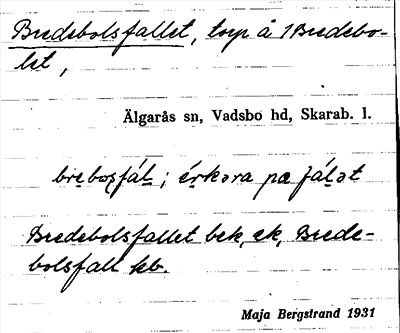 Bredebolsfallet, torp å 1 Bredebo-
let,
Älgarås sn, Vadsbo hd, Skarab. l.
brebosfál; érkəra pa fálət
Bredebolsfallet bek, ek, Brede-
bolsfall kb.
Maja Bergstrand 1931